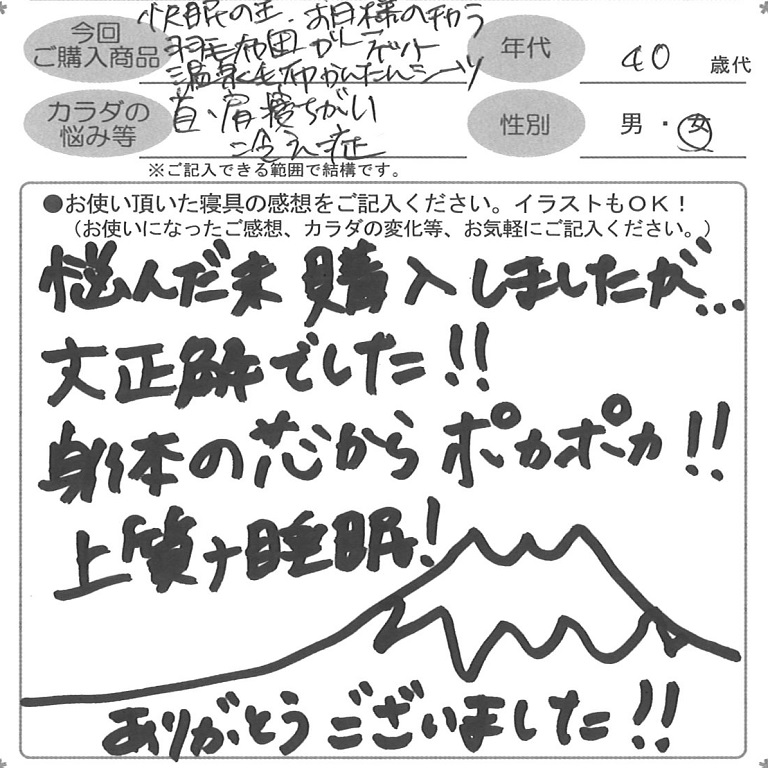 今回
ご購入商品
快眠の王・お日様の
羽毛布団 ガーネット
温泉毛布かんたんシーツ
年代
40 歳代
カラダの
悩み等
首・肩 寝ちがい
冷え症
性別
男・女
※ご記入できる範囲で結構です。
●お使い頂いた寝具の感想をご記入ください。イラストもOK！
（お使いになったご感想、カラダの変化等、お気軽にご記入ください。）
悩んだ末 購入しましたが...
大正解でした!!
身体の芯から ポカポカ!!
上質ナ睡眠!
ありがとうございました!!